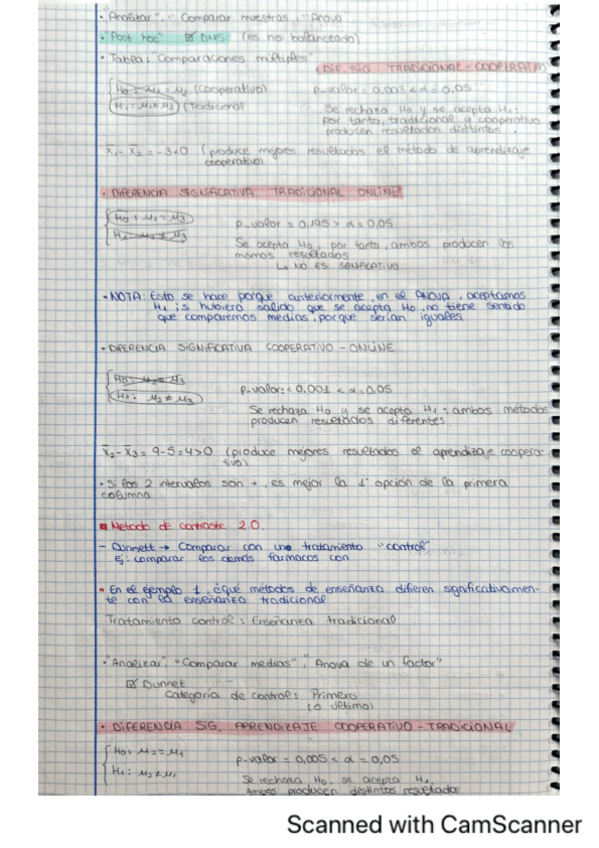 • "Analizar", "Comparar muestras, "Anova"
• "Post hoc" ☑ DMS (es no balanceado)
• Tabla: "Comparaciones múltiples"
• DIF. SIG. TRADICIONAL - COOPERATIVO
H0: μ1 = μ2 (cooperativo) p-valor = 0,003 < α = 0,05
H1: μ1 ≠ μ2) (Tradicional Se rechaza H0 y se acepta H1;
por tanto, tradicional y cooperativo
producen resultados distintos.
x̄1 - x̄2 = -3<0 (produce mejores resultados el método de aprendizaje
cooperativo)
• DIFERENCIA SIGNIFICATIVA TRADICIONAL ONLINE
H0: μ1 = μ3 p-valor = 0,195 > α = 0,05
H1: μ1 ≠ μ3 Se acepta H0, por tanto, ambas producen los
mismos resultados
↳ NO ES SIGNIFICATIVO
• NOTA: Esto se hace porque anteriormente, en el ANOVA, aceptamos
H1, si hubiera salido que se acepta H0, no tiene sentido
que comparemos medias, porque serían iguales
• DIFERENCIA SIGNIFICATIVA COOPERATIVO - ONLINE
H0: μ2 = μ3
H1: μ2 ≠ μ3 p-valor: < 0,001 < α = 0,05
Se rechaza H0 y se acepta H1: ambos métodos
producen resultados diferentes
x̄2 - x̄3 = 9-5=4>0 (produce mejores resultados el aprendizaje cooperativo)
• Si los 2 intervalos son +, es mejor la 1ª opción de la primera
columna
Método de contraste 2.0.
- Dunnett → Comparar con un tratamiento "control"
Ej: comparar los demás fármacos con
• En el ejemplo 1, ¿qué métodos de enseñanza difieren significativamen-
te con la enseñanza tradicional
Tratamiento control: Enseñanza tradicional
• "Analizar", "Comparar medias", "Anova de un factor"
☑ Dunnet
Categoría de control: Primero
(o último)
• DIFERENCIA SIG. APRENDIZAJE COOPERATIVO - TRADICIONAL
H0: μ2 = μ1 p-valor = 0,005 < α = 0,05
H1: μ2 ≠ μ1 Se rechaza H0, se acepta H1
Ambos producen distintos resultados
Scanned with CamScanner